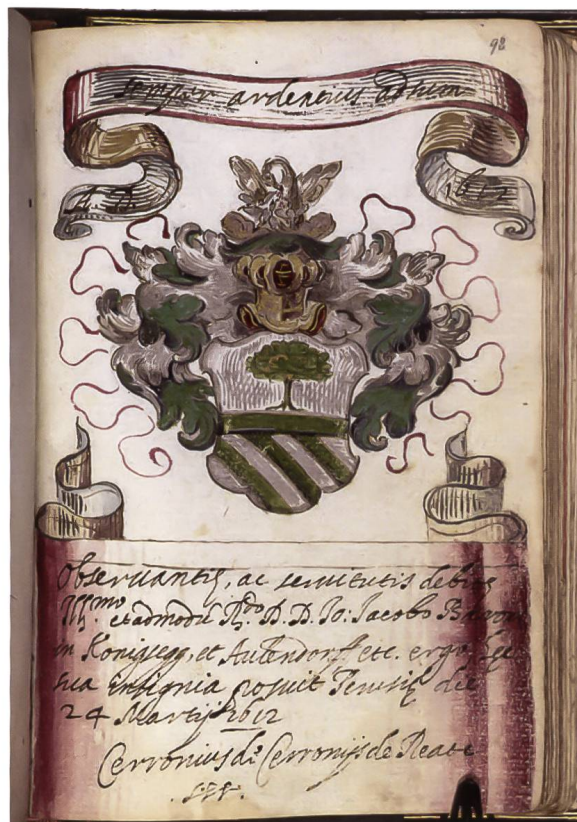 98
semper ardentius
A. D. 1612
Obseruantiæ, ac seruitutis debitæ
Ill.mo et admodũ R.do D. D. Io: Iacobo Baroni
in Konigsegg, et Aulendorff etc. ergo hæc
sua insignia posuit Perusiæ die
24 Martij 1612
Cerronius de Cerronijs de Reate